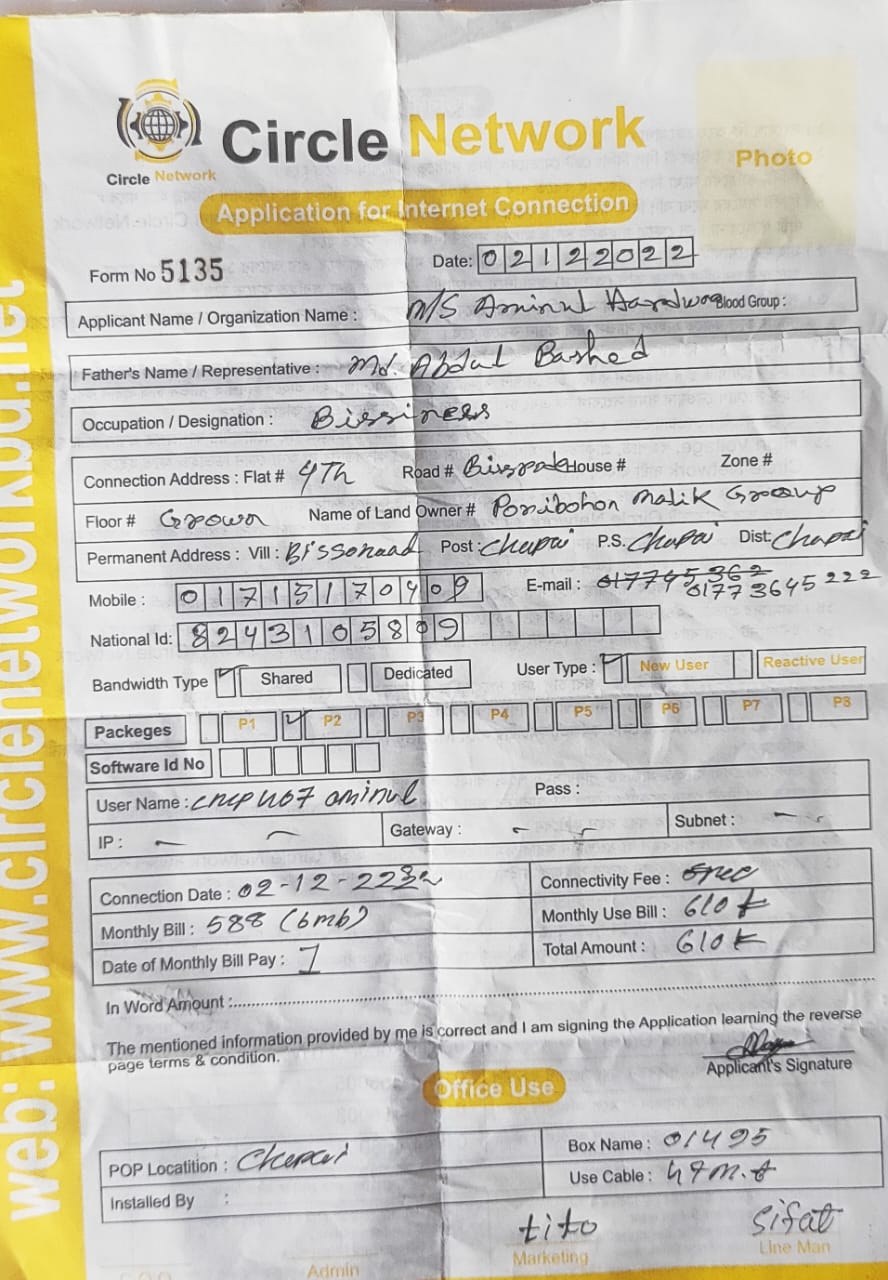 Circle Network
Circle Network
Photo
Application for Internet Connection
Form No 5135
Date: 02122022
Applicant Name / Organization Name : M/S Aminul Hardwar Blood Group :
Father's Name / Representative : Md. Abdul Bashed
Occupation / Designation : Bissiness
Connection Address : Flat # 4Th Road # House # Zone #
Floor # Name of Land Owner # Poribohon Malik Group
Permanent Address : Vill : Post : Chapai P.S. Chapai Dist: Chapai
Mobile : 01715170409 E-mail : 01773645222
National Id: 8243105809
Bandwidth Type Shared Dedicated User Type : New User Reactive User
Packeges P1 P2 P3 P4 P5 P6 P7 P8
Software Id No
User Name : aminul Pass :
IP : Gateway : Subnet :
Connection Date : 02-12-22 Connectivity Fee :
Monthly Bill : 588 (6mb) Monthly Use Bill : 610
Date of Monthly Bill Pay : 1 Total Amount : 610
In Word Amount :
The mentioned information provided by me is correct and I am signing the Application learning the reverse
page terms & condition.
Applicant's Signature
Office Use
POP Locatition : Chapai Box Name : 01495
Installed By : Use Cable :
tito Sifat
Marketing Line Man
Admin
web: www.circlenetworkbd.net